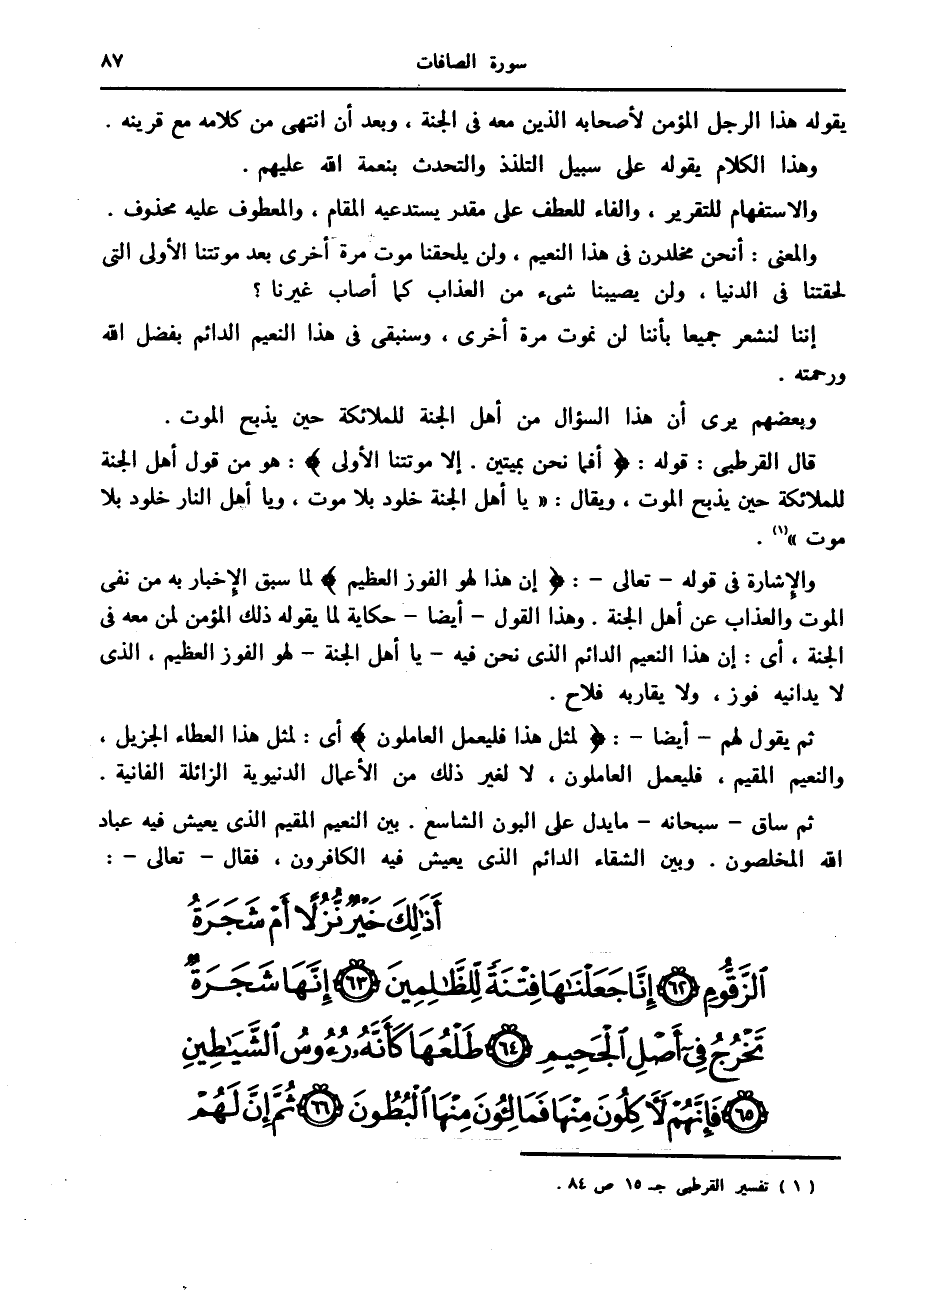 سورة الصافات ٨٧
يقوله هذا الرجل المؤمن لأصحابه الذين معه فى الجنة ، وبعد أن انتهى من كلامه مع قرينه .
وهذا الكلام يقوله على سبيل التلذذ والتحدث بنعمة الله عليهم .
والاستفهام للتقرير ، والفاء للعطف على مقدر يستدعيه المقام ، والمعطوف عليه محذوف .
والمعنى : أنحن مخلدرن فى هذا النعيم ، ولن يلحقنا موت مرة أخرى بعد موتتنا الأولى التى
لحقتنا فى الدنيا ، ولن يصيبنا شىء من العذاب كما أصاب غيرنا ؟
إننا لنشعر جميعا بأننا لن نموت مرة أخرى ، وسنبقى فى هذا النعيم الدائم بفضل الله
ورحمته .
وبعضهم يرى أن هذا السؤال من أهل الجنة للملائكة حين يذبح الموت .
قال القرطبى : قوله : ﴿ أفما نحن بميتين . إلا موتتنا الأولى ﴾ : هو من قول أهل الجنة
للملائكة حين يذبح الموت ، ويقال : « يا أهل الجنة خلود بلا موت ، ويا أهل النار خلود بلا
موت »(١) .
والإشارة فى قوله - تعالى - : ﴿ إن هذا لهو الفوز العظيم ﴾ لما سبق الإخبار به من نفى
الموت والعذاب عن أهل الجنة . وهذا القول - أيضا - حكاية لما يقوله ذلك المؤمن لمن معه فى
الجنة ، أى : إن هذا النعيم الدائم الذى نحن فيه - يا أهل الجنة - لهو الفوز العظيم ، الذى
لا يدانيه فوز ، ولا يقاربه فلاح .
ثم يقول لهم - أيضا - : ﴿ لمثل هذا فليعمل العاملون ﴾ أى : لمثل هذا العطاء الجزيل ،
والنعيم المقيم ، فليعمل العاملون ، لا لغير ذلك من الأعمال الدنيوية الزائلة الفانية .
ثم ساق - سبحانه - مايدل على البون الشاسع . بين النعيم المقيم الذى يعيش فيه عباد
الله المخلصون . وبين الشقاء الدائم الذى يعيش فيه الكافرون ، فقال - تعالى - :
أَذَٰلِكَ خَيْرٌ نُّزُلًا أَمْ شَجَرَةُ
ٱلزَّقُّومِ ٦٢ إِنَّا جَعَلْنَٰهَا فِتْنَةً لِّلظَّٰلِمِينَ ٦٣ إِنَّهَا شَجَرَةٌ
تَخْرُجُ فِىٓ أَصْلِ ٱلْجَحِيمِ ٦٤ طَلْعُهَا كَأَنَّهُۥ رُءُوسُ ٱلشَّيَٰطِينِ
٦٥ فَإِنَّهُمْ لَءَاكِلُونَ مِنْهَا فَمَالِـُٔونَ مِنْهَا ٱلْبُطُونَ ٦٦ ثُمَّ إِنَّ لَهُمْ
( ١ ) تفسير القرطبى جـ ١٥ ص ٨٤ .